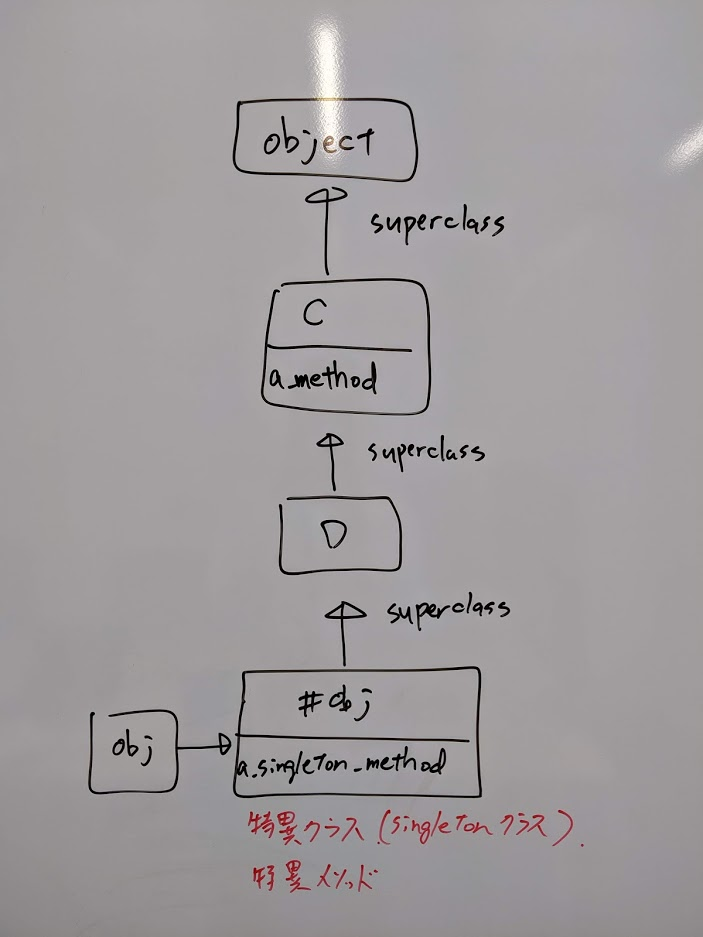 object
superclass
C
a_method
superclass
D
superclass
#obj
obj
a_singleton_method
特異クラス (singletonクラス).
特異メソッド